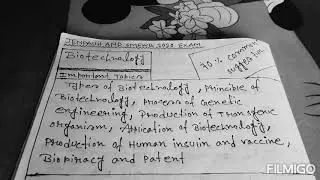 JENPAUH AND GNM 2020 EXAM
Biotechnology
90% common
suggestion
Important Topics
Types of Biotechnology, Princible of
Biotechnology, Process of Genetic
engineering, Production of Transgenic
organism, Application of Biotechnology,
Production of Human insulin and vaccine,
Biopiracy and Patent
FILMIGO